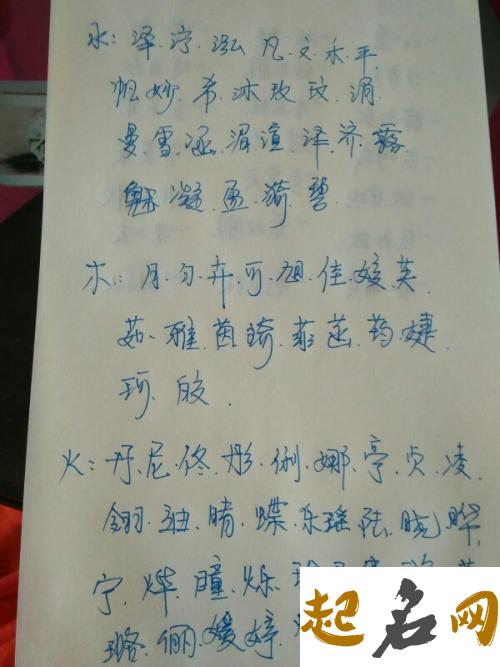 水：泽.泞.泓.凡.文.禾.平.
帆.妙.希.沐.玫.玟.涓.
曼.雪.涵.湄.渲.泽.济.露.
魅.凝.盈.漪.碧.
木：月.匀.卉.可.旭.佳.媛.英.
茹.雅.茵.琦.菲.茜.筠.婕.
珂.胶.
火：丹.尼.佟.彤.俐.娜.亭.贞.凌.
翎.迪.晴.蝶.乐瑶.陆.晓.晔.
宁.烨.瞳.烁.
璐.俪.媛.婷.
起名网